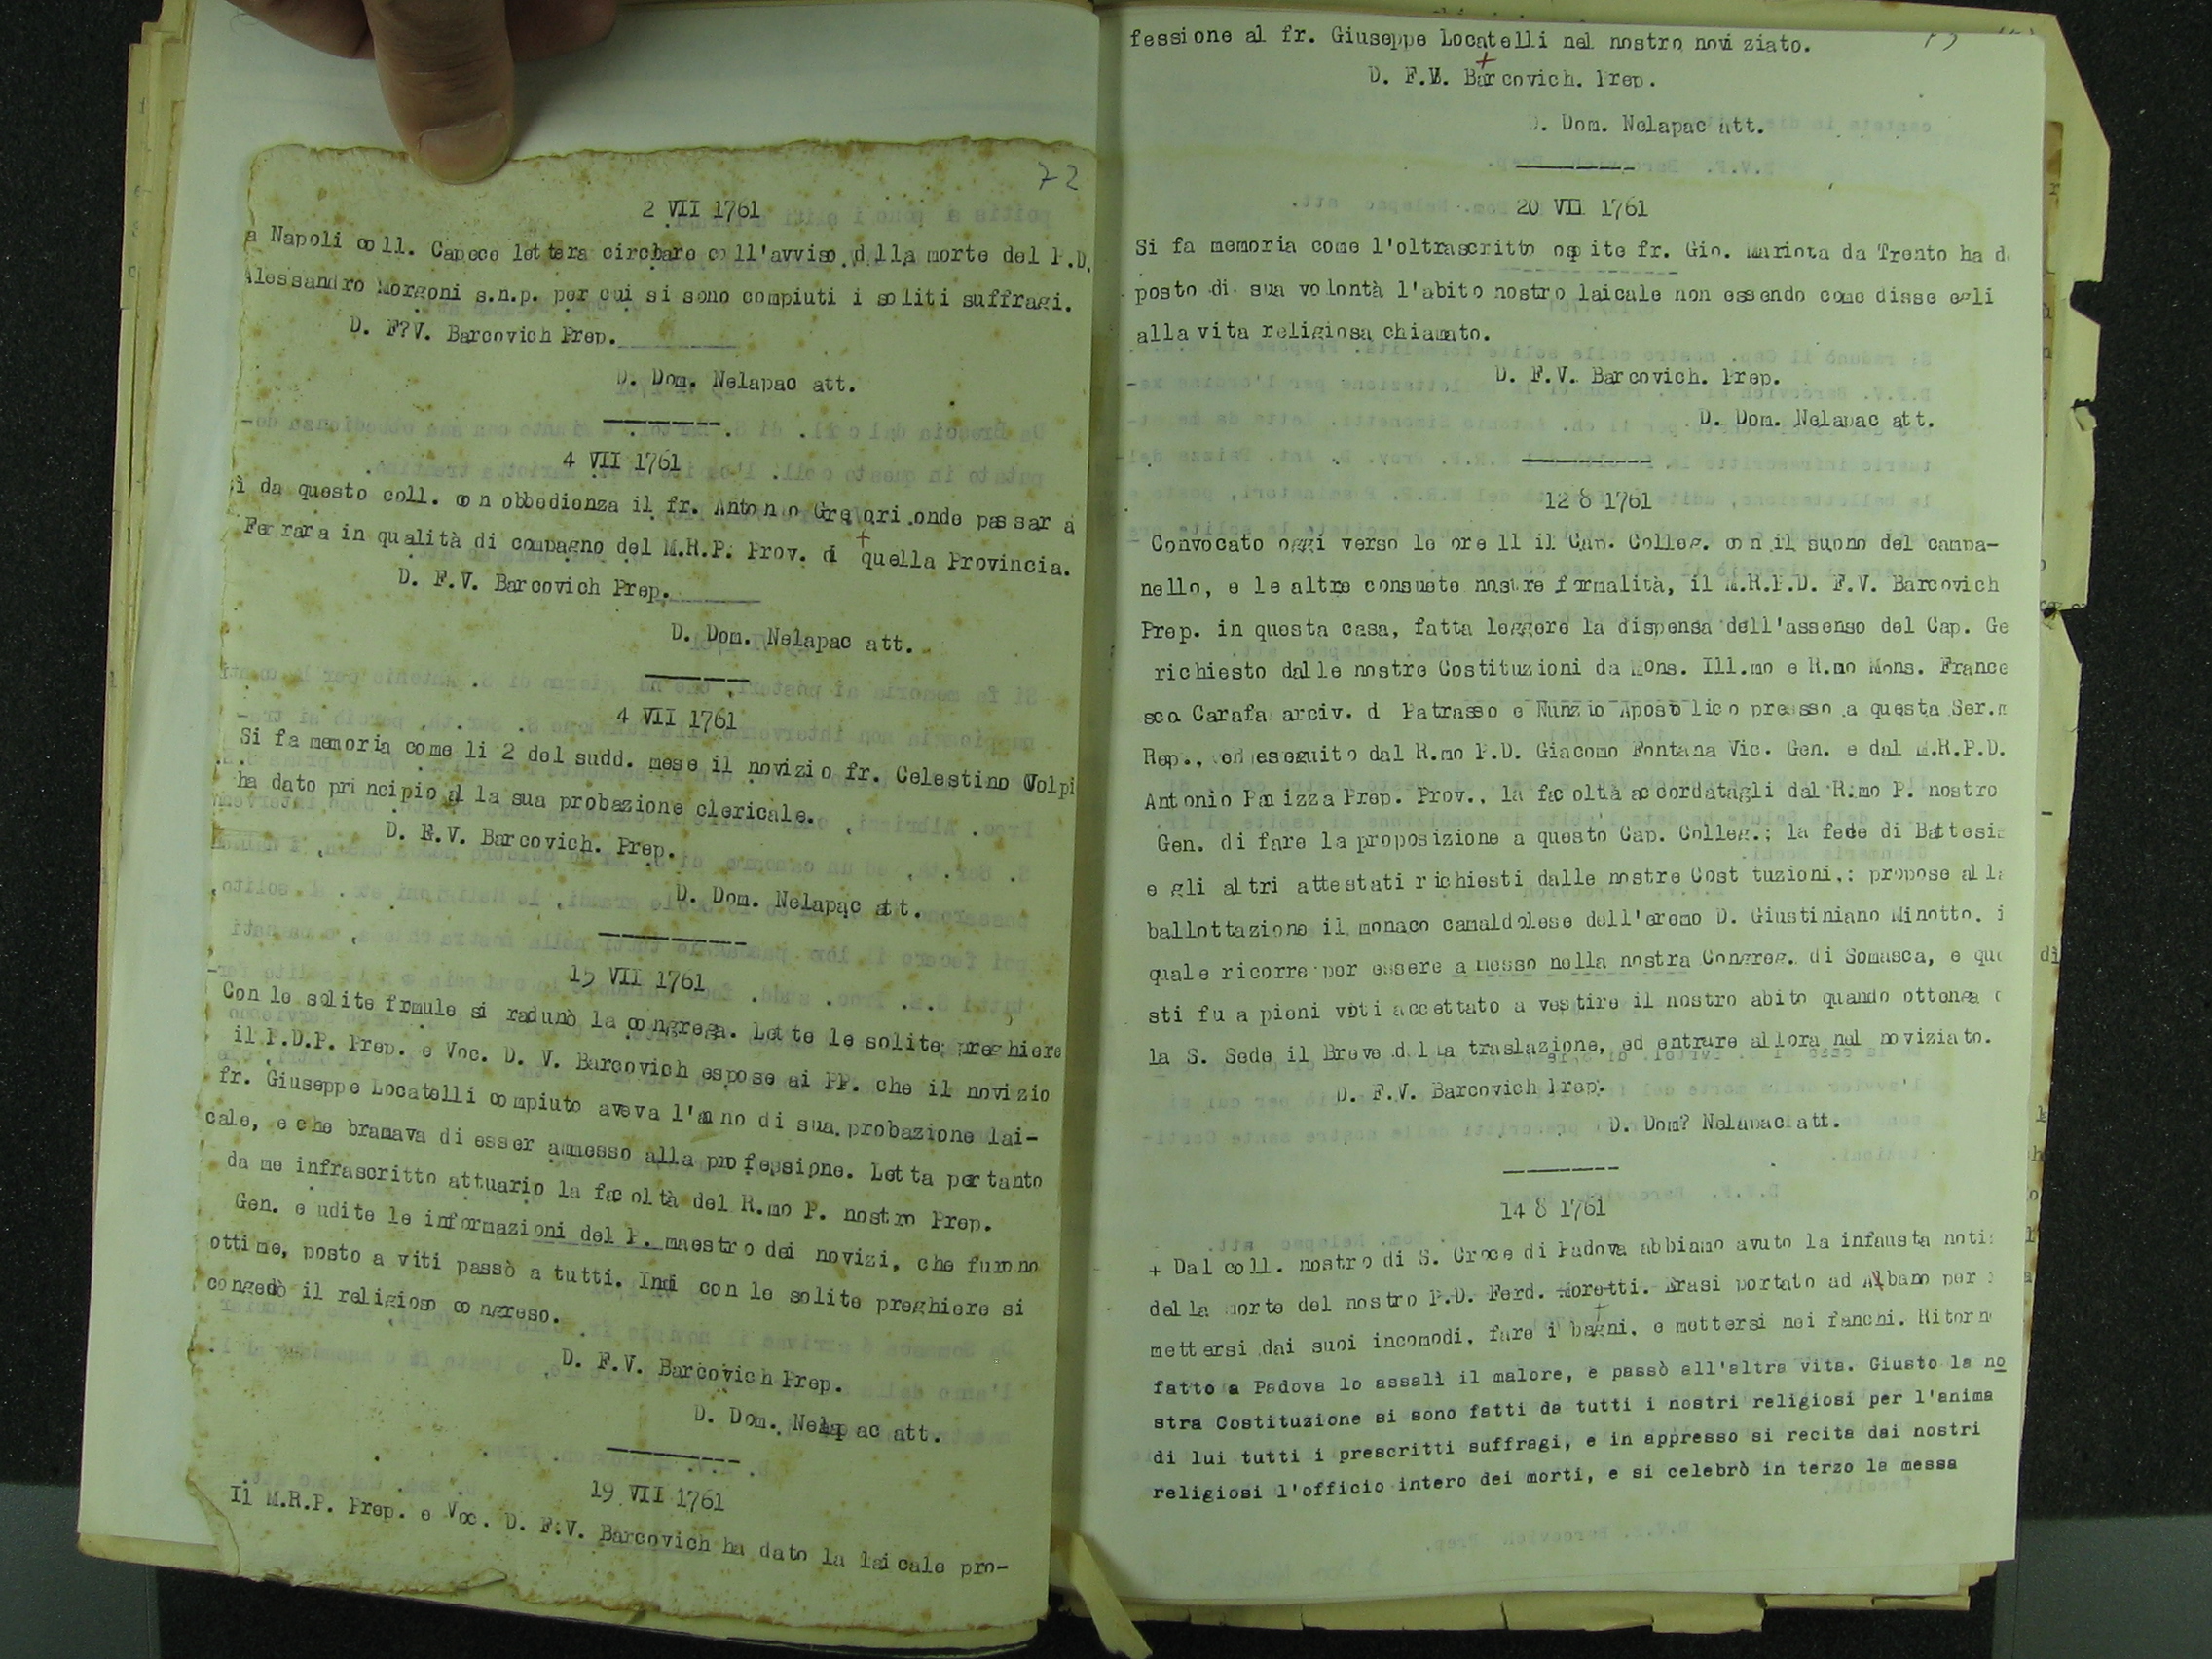 72
2 VII 1761
a Napoli coll. Capece lettera circlare coll'avviso dlla morte del P.D.
Alessandro Morgoni s.n.p. per cui si sono compiuti i soliti suffragi.
D. F?V. Barcovich Prep.
D. Dom. Nelapac att.
4 VII 1761
ì da questo coll. con obbedienza il fr. Antonio Gregori onde passar a
Ferrara in qualità di compagno del M.R.P. Prov. di quella Provincia.
D. F.V. Barcovich Prep.
D. Dom. Nelapac att.
4 VII 1761
Si fa memoria come li 2 del sudd. mese il novizio fr. Celestino Volpi
ha dato principio alla sua probazione clericale.
D. F.V. Barcovich. Prep.
D. Dom. Nelapac att.
15 VII 1761
Con le solite frmule si radunò la congrega. Lette le solite preghiere
il P.D.P. Prep. e Voc. D. V. Barcovich espose ai PP. che il novizio
fr. Giuseppe Locatelli compiuto aveva l'anno di sua probazione lai-
cale, e che bramava di esser ammesso alla professione. Letta pertanto
da me infrascritto attuario la facoltà del R.mo P. nostro Prep.
Gen. e udite le informazioni del P. maestro dei novizi, che furono
ottime, posto a viti passò a tutti. Indi con le solite preghiere si
congedò il religioso congreso.
D. F.V. Barcovich Prep.
D. Dom. Nelapac att.
19 VII 1761
Il M.R.P. Prep. e Voc. D. F.V. Barcovich ha dato la laicale pro-
fessione al fr. Giuseppe Locatelli nel nostro noviziato.
D. F.V. Barcovich. Prep.
D. Dom. Nelapac att.
20 VII 1761
Si fa memoria come l'oltrascritto ospite fr. Gio. Mariota da Trento ha d
posto di sua volontà l'abito nostro laicale non essendo come disse egli
alla vita religiosa chiamato.
D. F.V. Barcovich. Prep.
D. Dom. Nelapac att.
12 8 1761
Convocato oggi verso le ore 11 il Cap. Colleg. con il suono del campa-
nello, e le altre consuete nostre formalità, il M.R.P.D. F.V. Barcovich
Prep. in questa casa, fatta leggere la dispensa dell'assenso del Cap. Ge
richiesto dalle nostre Costituzioni da Mons. Ill.mo e R.mo Mons. France
sco Carafa arciv. d Patrasso e Nunzio Apostolico presso a questa Ser.m
Rep., ed eseguito dal R.mo P.D. Giacomo Fontana Vic. Gen. e dal M.R.P.D.
Antonio Panizza Prep. Prov., la facoltà accordatagli dal R.mo P. nostro
Gen. di fare la proposizione a questo Cap. Colleg.; la fede di Battesi
e gli altri attestati richiesti dalle nostre Costtuzioni,: propose alla
ballottazione il monaco camaldolese dell'eremo D. Giustiniano Minotto. i
quale ricorre per essere amesso nella nostra Congreg. di Somasca, e que
sti fu a pieni voti accettato a vestire il nostro abito quando ottenga
la S. Sede il Breve dlla traslazione, ed entrare allora nel noviziato.
D. F.V. Barcovich Prep.
D. Dom? Nelapac att.
14 8 1761
+ Dal coll. nostro di S. Croce di Padova abbiamo avuto la infausta noti
della morte del nostro P.D. Ferd. Moretti. Erasi portato ad Abano per
mettersi dai suoi incomodi, fare i bagni, e mettersi nei fanghi. Ritorn
fatto a Padova lo assalì il malore, e passò all'altra vita. Giusto la no
stra Costituzione si sono fatti da tutti i nostri religiosi per l'anima
di lui tutti i prescritti suffragi, e in appresso si recita dai nostri
religiosi l'officio intero dei morti, e si celebrò in terzo la messa